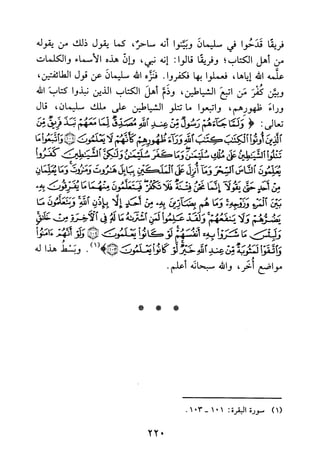 فريقًا قَدَحُوا في سليمانَ وبيَّنوا أنه ساحرٌ، كما يقول ذلك من يقوله
من أهل الكتاب؛ وفريقًا قالوا: إنه نبي، وإنّ هذه الأسماء والكلمات
علَّمه الله إياها، فعملوا بها فكفروا. فنزَّه الله سليمانَ عن قول الطائفتين،
وبيَّن كُفْرَ مَن اتبعَ الشياطين، وذَمَّ أهلَ الكتاب الذين نبذوا كتابَ الله
وراءَ ظهورهم، واتبعوا ما تتلو الشياطين على ملك سليمان، قال
تعالى: ﴿ وَلَمَّا جَاءَهُمْ رَسُولٌ مِّنْ عِندِ اللَّهِ مُصَدِّقٌ لِّمَا مَعَهُمْ نَبَذَ فَرِيقٌ مِّنَ
الَّذِينَ أُوتُوا الْكِتَابَ كِتَابَ اللَّهِ وَرَاءَ ظُهُورِهِمْ كَأَنَّهُمْ لَا يَعْلَمُونَ ﴿١٠١﴾ وَاتَّبَعُوا مَا
تَتْلُوا الشَّيَاطِينُ عَلَىٰ مُلْكِ سُلَيْمَانَ وَمَا كَفَرَ سُلَيْمَانُ وَلَٰكِنَّ الشَّيَاطِينَ كَفَرُوا
يُعَلِّمُونَ النَّاسَ السِّحْرَ وَمَا أُنزِلَ عَلَى الْمَلَكَيْنِ بِبَابِلَ هَارُوتَ وَمَارُوتَ وَمَا يُعَلِّمَانِ
مِنْ أَحَدٍ حَتَّىٰ يَقُولَا إِنَّمَا نَحْنُ فِتْنَةٌ فَلَا تَكْفُرْ فَيَتَعَلَّمُونَ مِنْهُمَا مَا يُفَرِّقُونَ بِهِ
بَيْنَ الْمَرْءِ وَزَوْجِهِ وَمَا هُم بِضَارِّينَ بِهِ مِنْ أَحَدٍ إِلَّا بِإِذْنِ اللَّهِ وَيَتَعَلَّمُونَ مَا
يَضُرُّهُمْ وَلَا يَنفَعُهُمْ وَلَقَدْ عَلِمُوا لَمَنِ اشْتَرَاهُ مَا لَهُ فِي الْآخِرَةِ مِنْ خَلَاقٍ
وَلَبِئْسَ مَا شَرَوْا بِهِ أَنفُسَهُمْ لَوْ كَانُوا يَعْلَمُونَ ﴿١٠٢﴾ وَلَوْ أَنَّهُمْ آمَنُوا
وَاتَّقَوْا لَمَثُوبَةٌ مِّنْ عِندِ اللَّهِ خَيْرٌ لَّوْ كَانُوا يَعْلَمُونَ ﴿١٠٣﴾﴾(١). وبَسْطُ هذا له
مواضع أُخَر، والله سبحانه أعلم.
* * *
(١) سورة البقرة: ١٠١ - ١٠٣.
٢٢٠